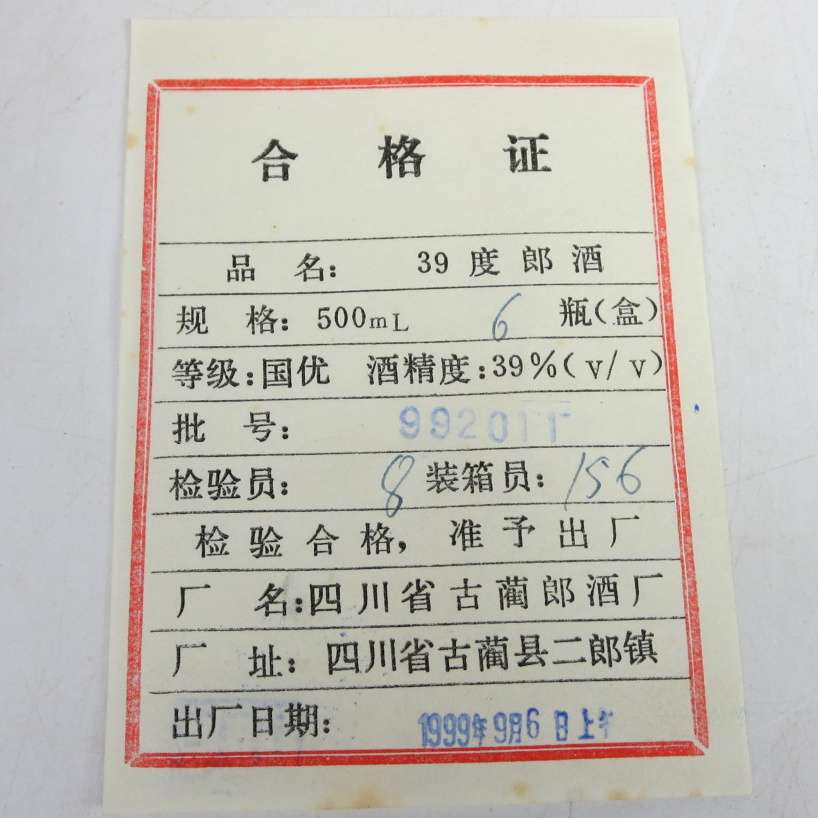 合格证
品名： 39度郎酒
规格：500mL 6 瓶(盒)
等级：国优 酒精度：39%(v/v)
批号： 992011
检验员： 8 装箱员：156
检验合格，准予出厂
厂名：四川省古蔺郎酒厂
厂址：四川省古蔺县二郎镇
出厂日期： 1999年9月6日上午